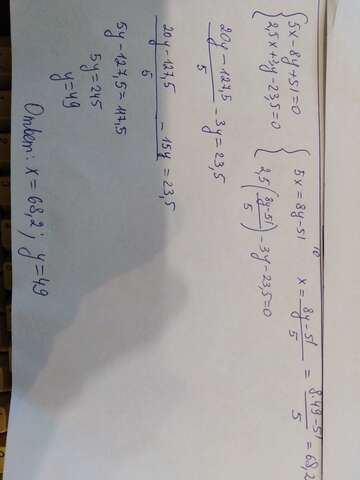 { 5x-8y+51=0
2,5x+3y-23,5=0
{ 5x=8y-51
2,5(8y-51/5)-3y-23,5=0
x=8y-51/5=8·49-51/5=68,2
20y-127,5/5-3y=23,5
20y-127,5/5-15y=23,5
5y-127,5=117,5
5y=245
y=49
Ответ: x=68,2; y=49